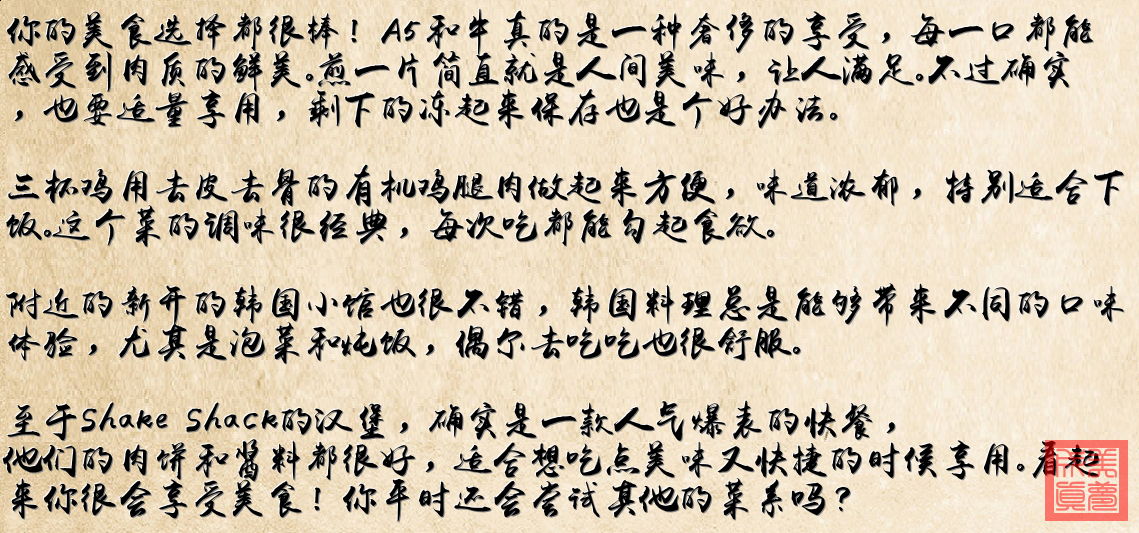 你的美食选择都很棒！A5和牛真的是一种奢侈的享受，每一口都能
感受到肉质的鲜美。煎一片简直就是人间美味，让人满足。不过确实
，也要适量享用，剩下的冻起来保存也是个好办法。
三杯鸡用去皮去骨的有机鸡腿肉做起来方便，味道浓郁，特别适合下
饭。这个菜的调味很经典，每次吃都能勾起食欲。
附近的新开的韩国小馆也很不错，韩国料理总是能够带来不同的口味
体验，尤其是泡菜和炖饭，偶尔去吃吃也很舒服。
至于Shake Shack的汉堡，确实是一款人气爆表的快餐，
他们的肉饼和酱料都很好，适合想吃点美味又快捷的时候享用。看起
来你很会享受美食！你平时还会尝试其他的菜系吗？